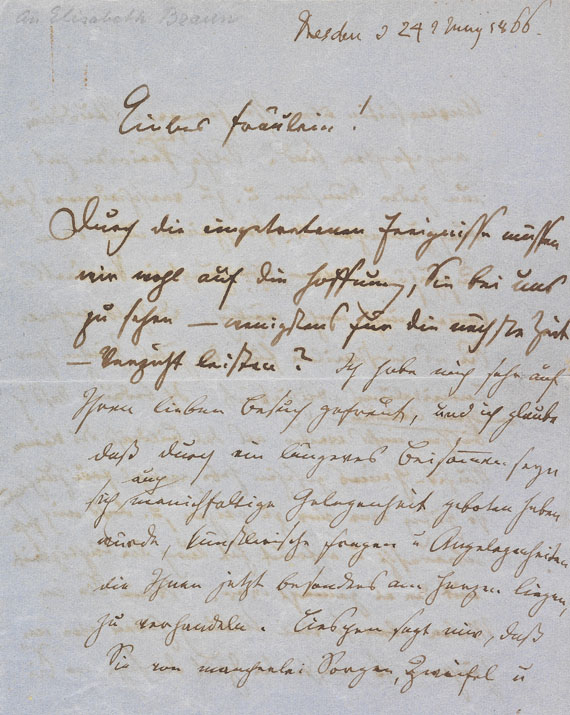 An Elisabeth Braun
Dresden d 24 t Juny 1866.
Liebes Fräulein!
Durch die eingetretenen Ereignisse müssen
wir wohl auf die Hoffnung, Sie bei uns
zu sehen – wenigstens für die nächste Zeit
– Verzicht leisten? Ich habe mich sehr auf
Ihren lieben Besuch gefreut, und ich glaube
daß durch ein längeres Beisammenseyn
sich auch manichfaltige Gelegenheit geboten haben
würde, künstlerische Fragen u Angelegenheiten
die Ihnen jetzt besonders am Herzen liegen,
zu verhandeln. Lieschen sagt mir, daß
Sie von mancherlei Sorgen, Zweifel u